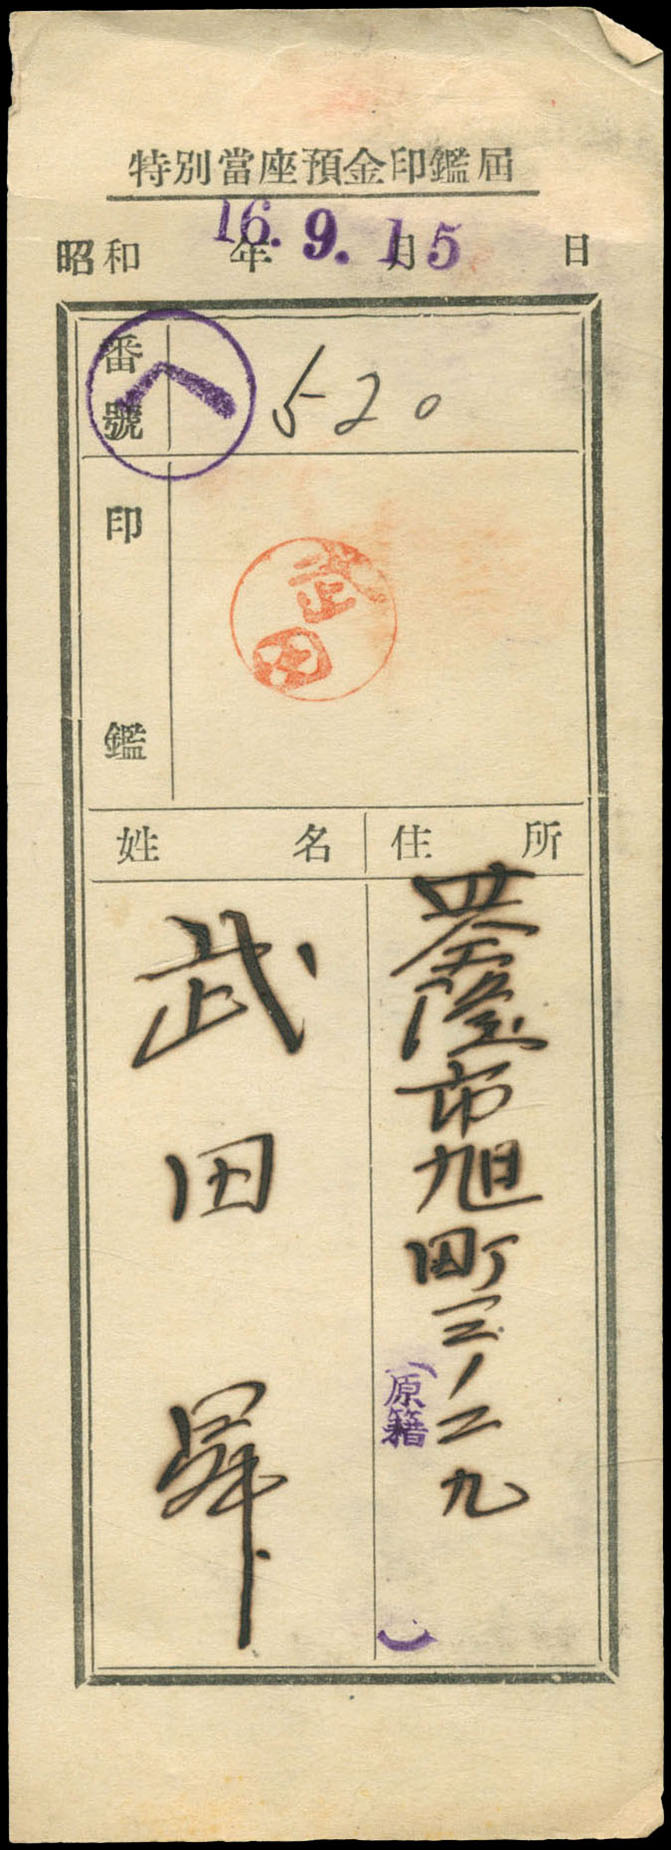 特別當座預金印鑑屆
昭和 年 月 日
16. 9. 15
番號
へ
520
印鑑
武田
姓名
住所
基隆市旭町三ノ二九
(原籍 )
武田昇